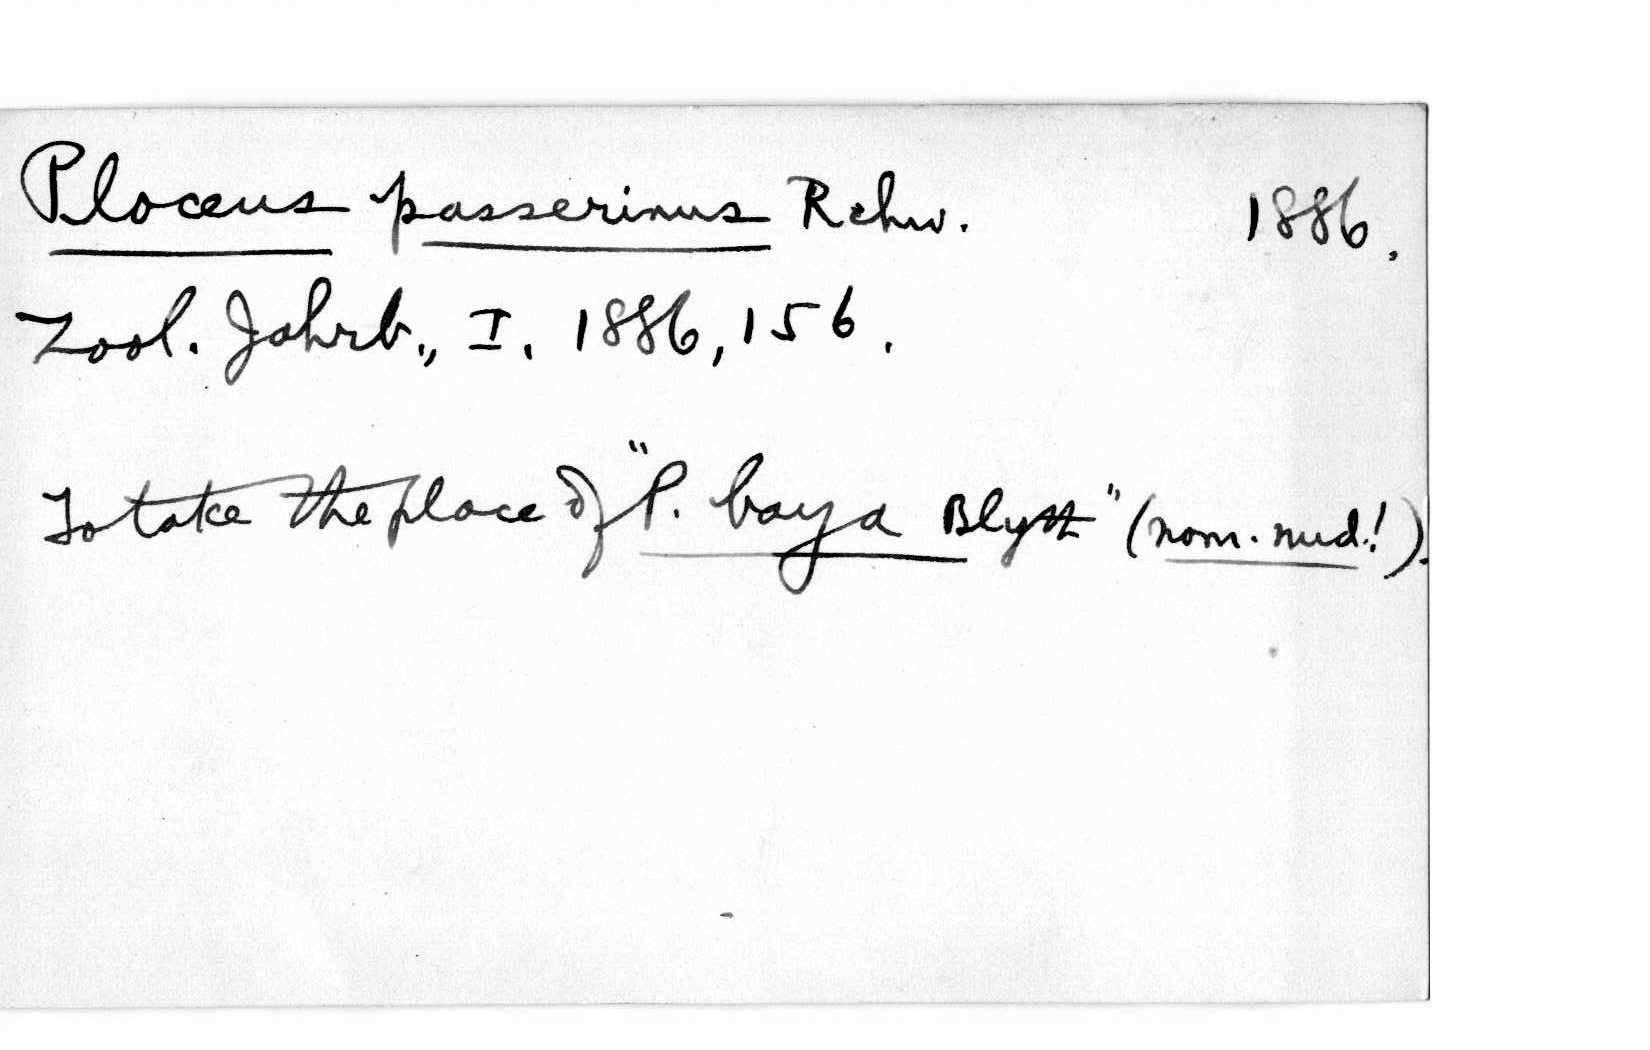 Ploceus passerinus Rchw. 1886.
Zool. Jahrb., I, 1886, 156.
To take the place of "P. baya Blyth" (nom. nud.!).